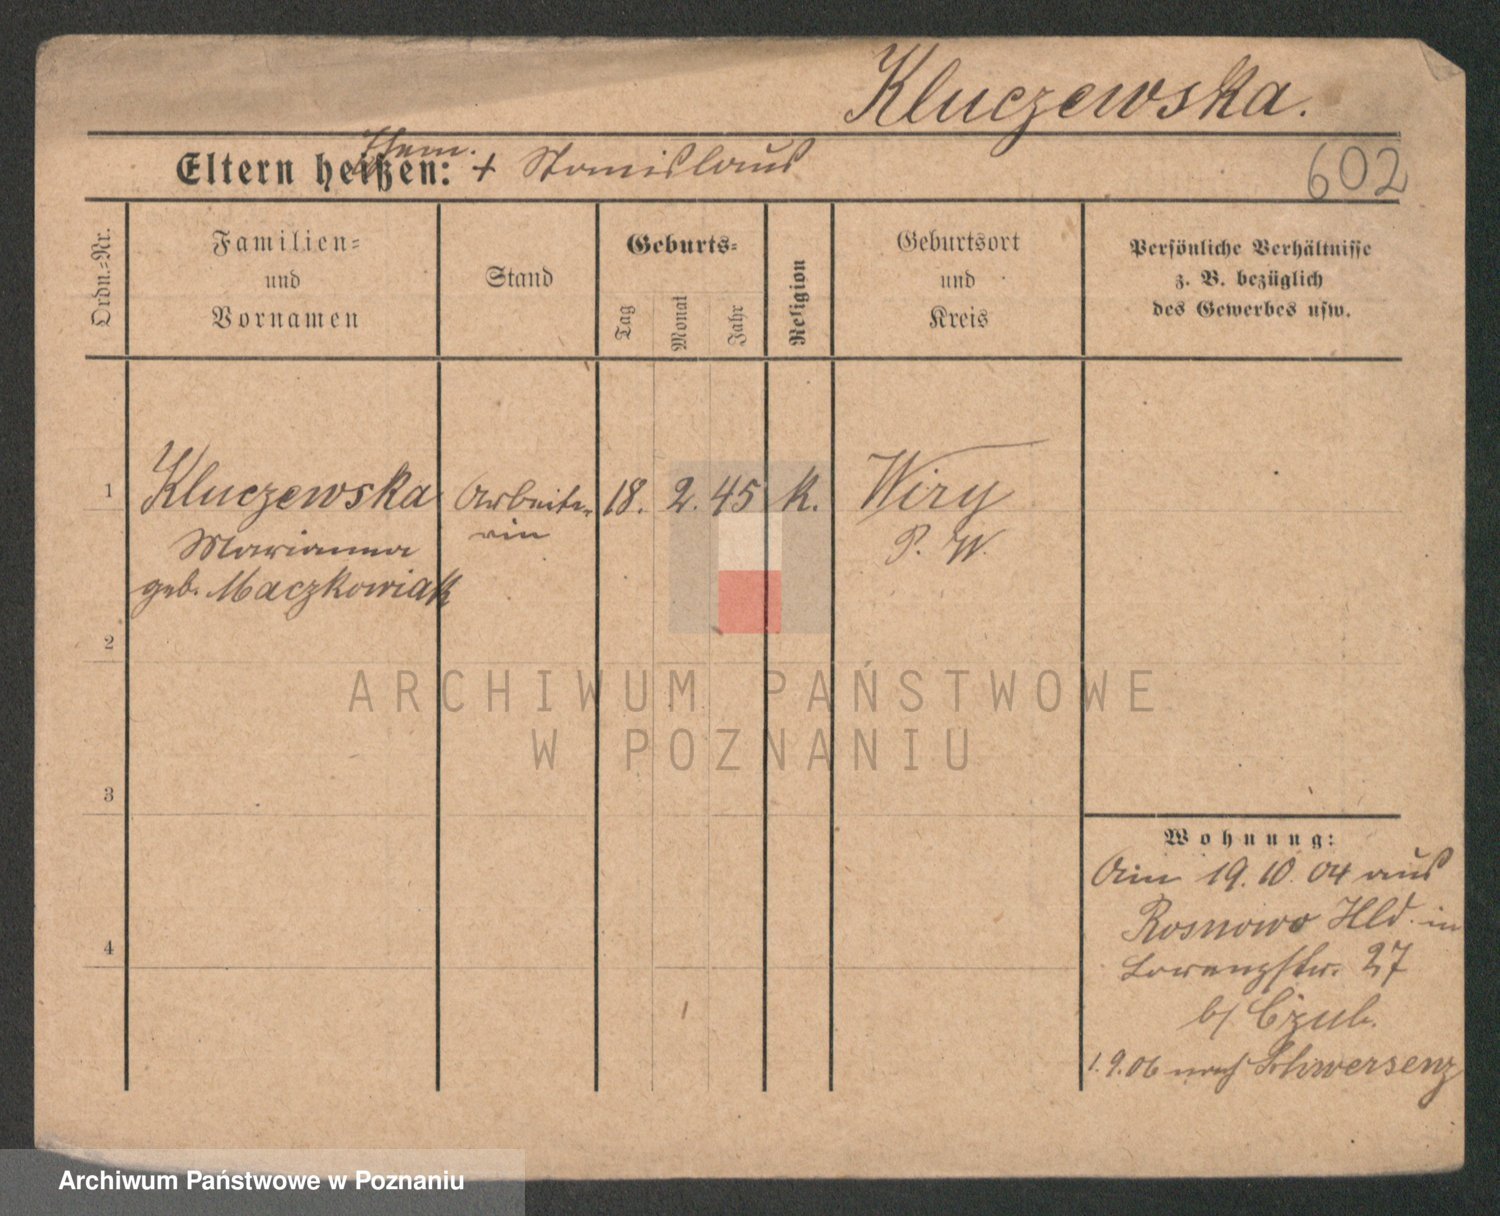 Kluczewska.
Eltern heißen: Ehem. + Stanislaus
602
Ordn.-Nr.
Familien-
und
Vornamen
Stand
Geburts-
Tag
Monat
Jahr
Religion
Geburtsort
und
Kreis
Persönliche Verhältnisse
z. B. bezüglich
des Gewerbes usw.
1 Kluczewska Arbeite- 18. 2. 45 k. Wiry
Marianna rin P. W.
geb. Maczkowiak
2
ARCHIWUM PAŃSTWOWE
W POZNANIU
3
Wohnung:
Am 19. 10. 04 aus
Rosnowo Hld. in
Lorenzstr. 27
b/ Czub.
4
1. 9. 06 nach Schwersenz
Archiwum Państwowe w Poznaniu